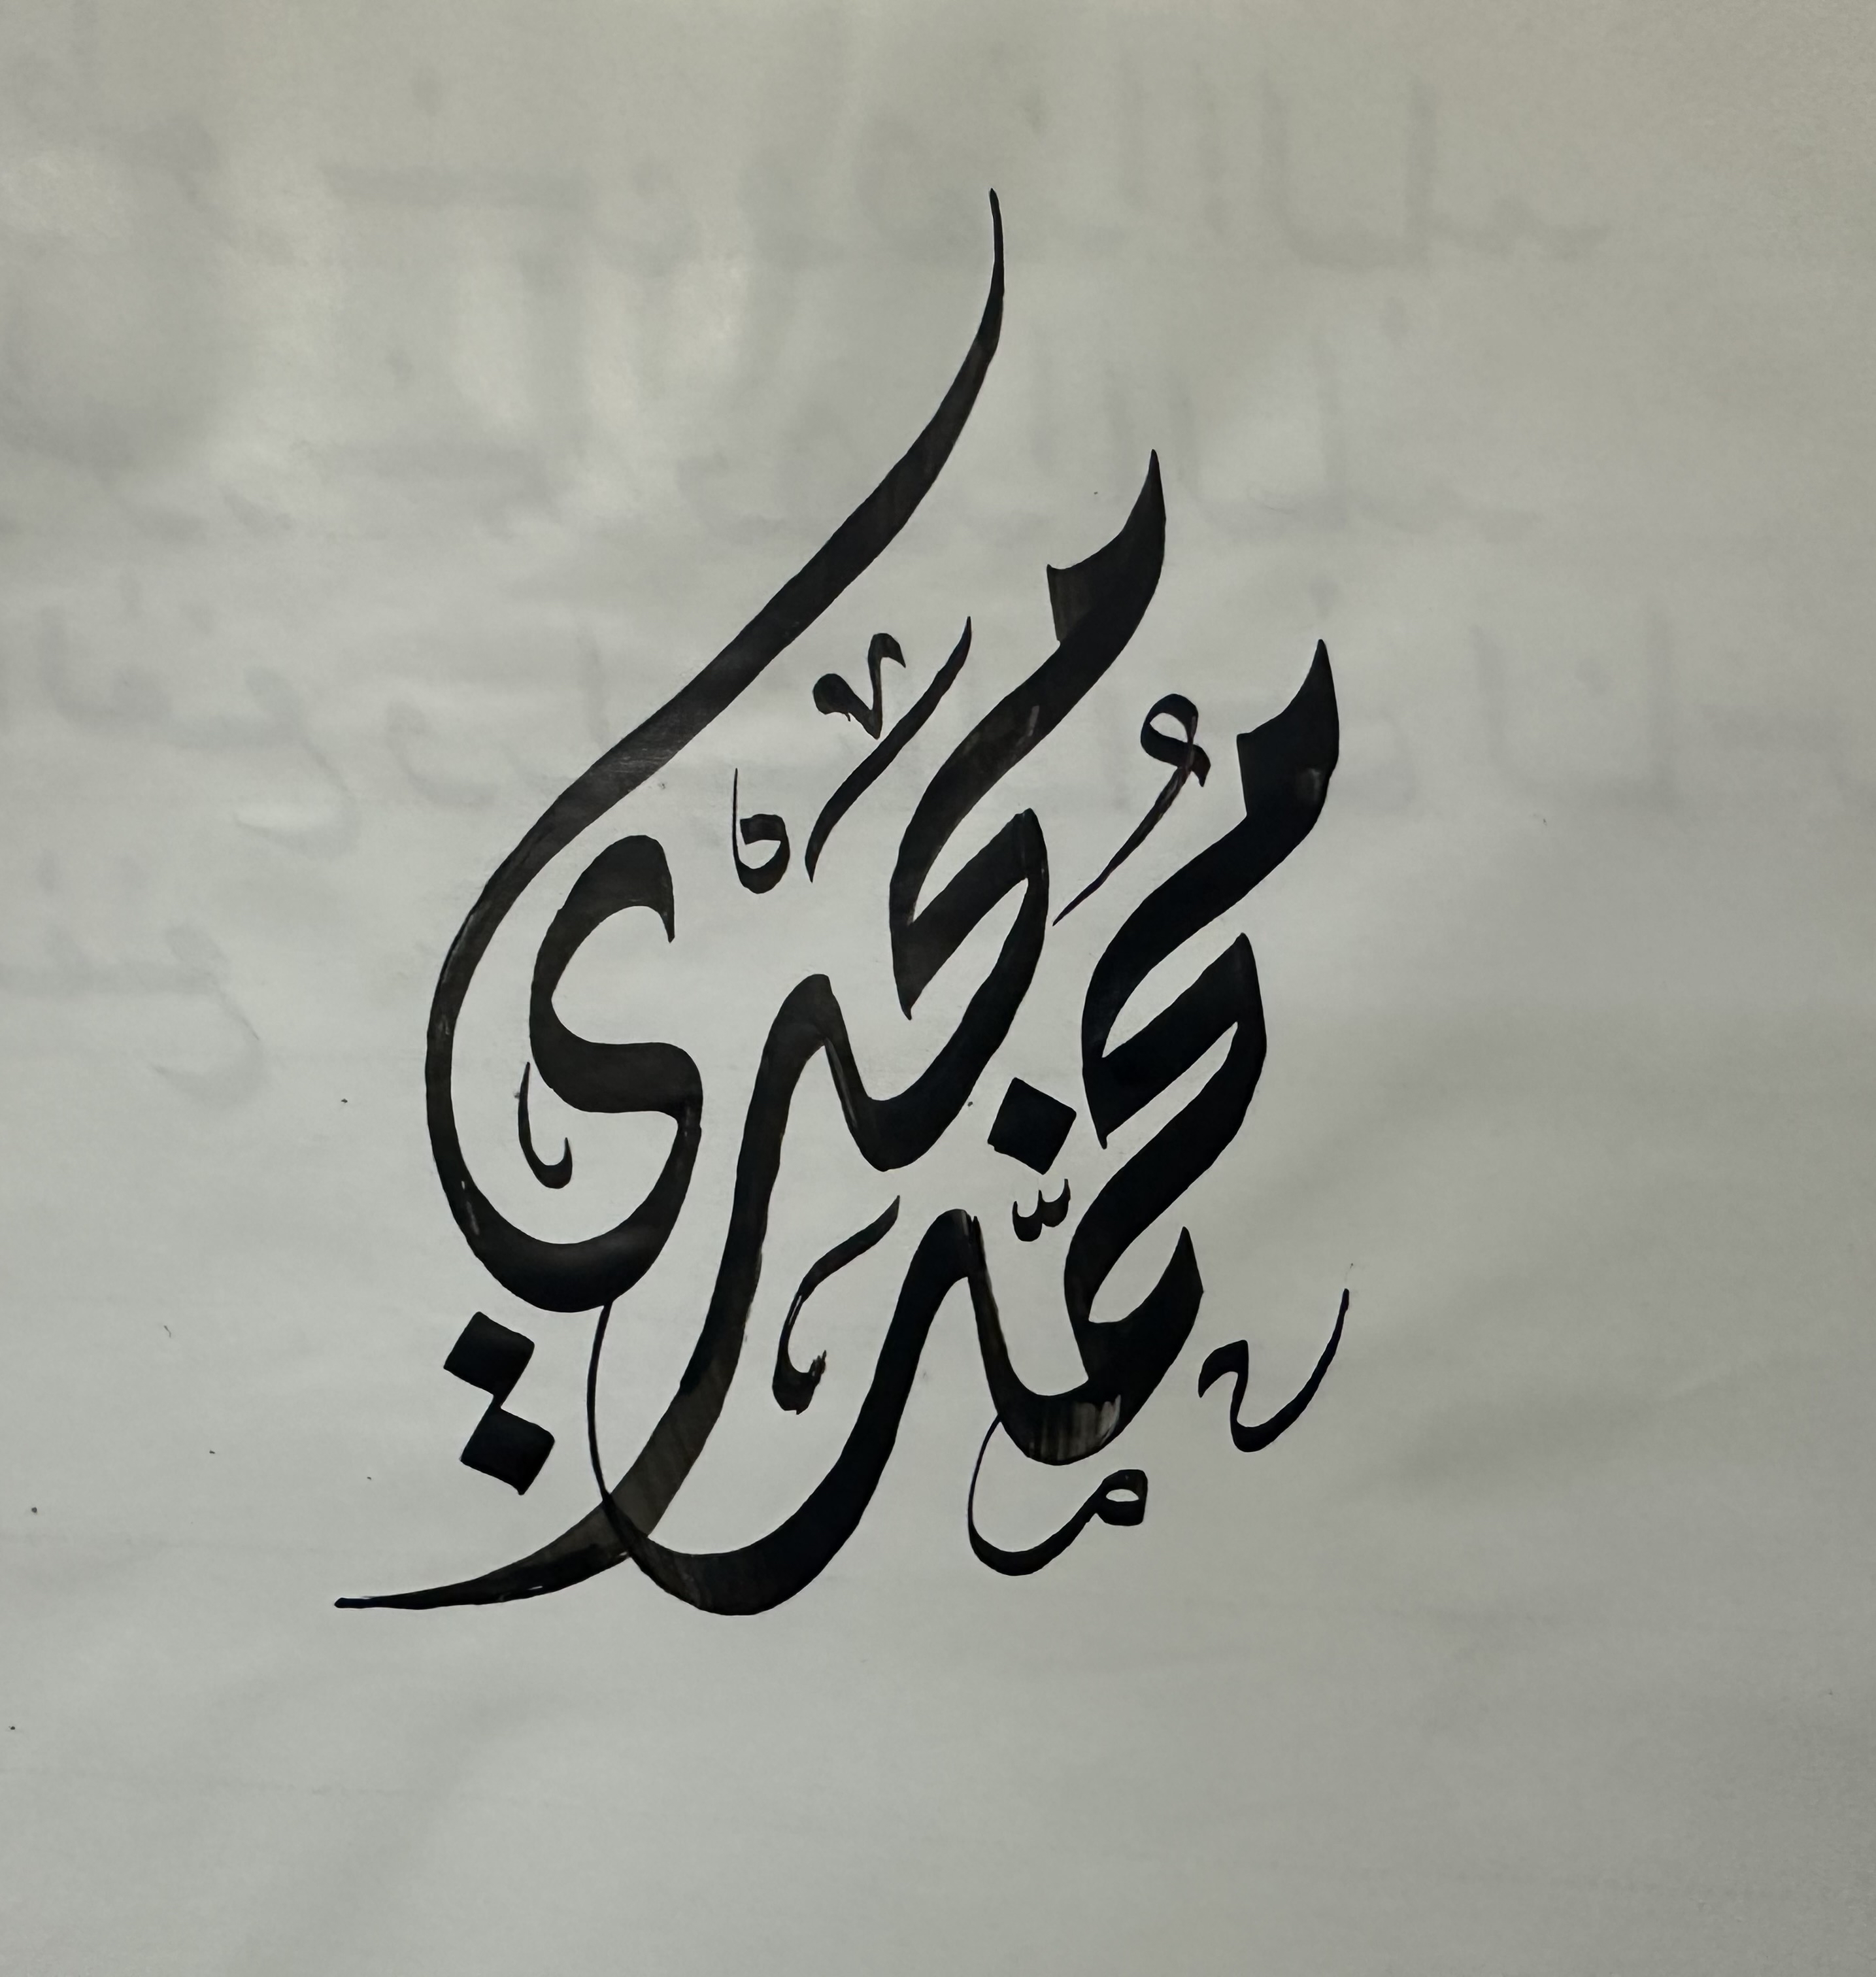 مُحمّد مجدي